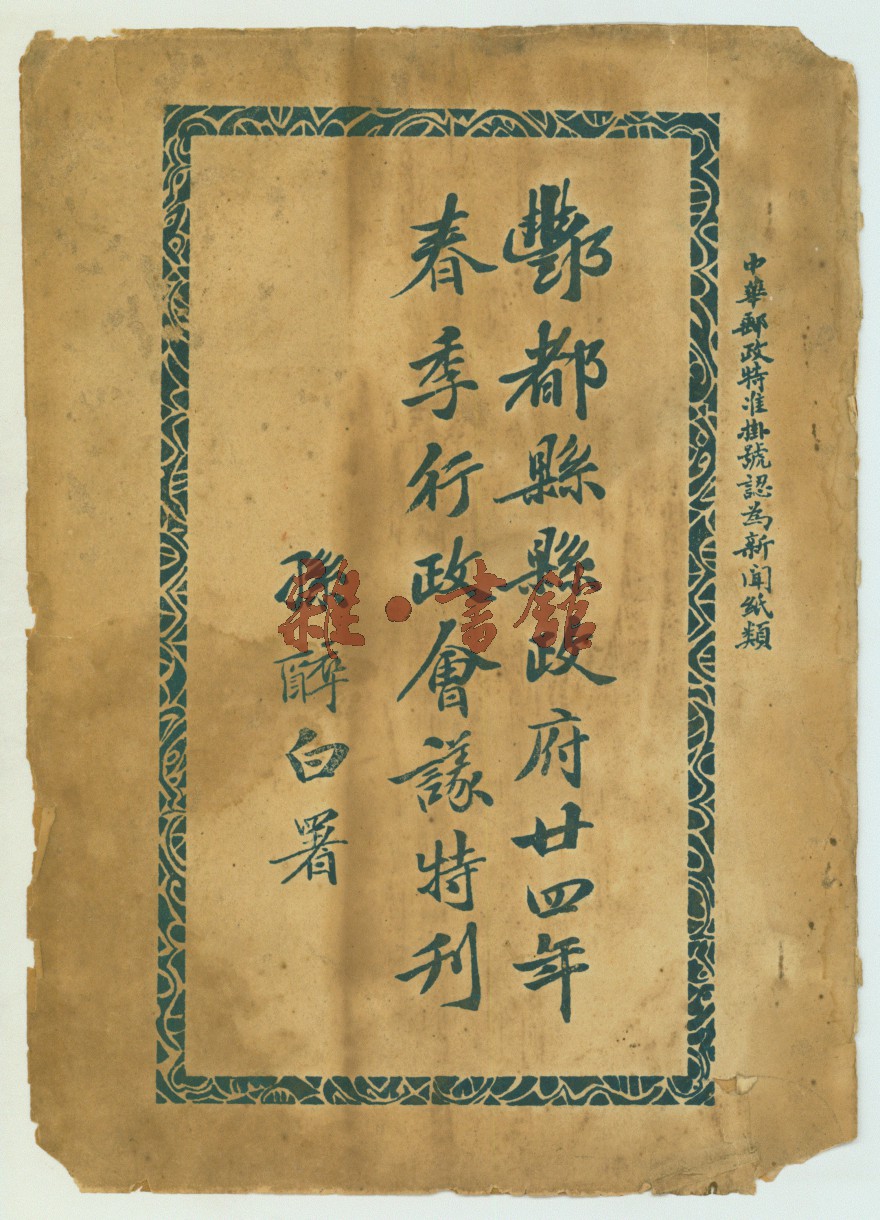 中華郵政特准掛號認為新聞紙類
酆都縣縣政府廿四年
春季行政會議特刊
孫醉白署
雜·書館